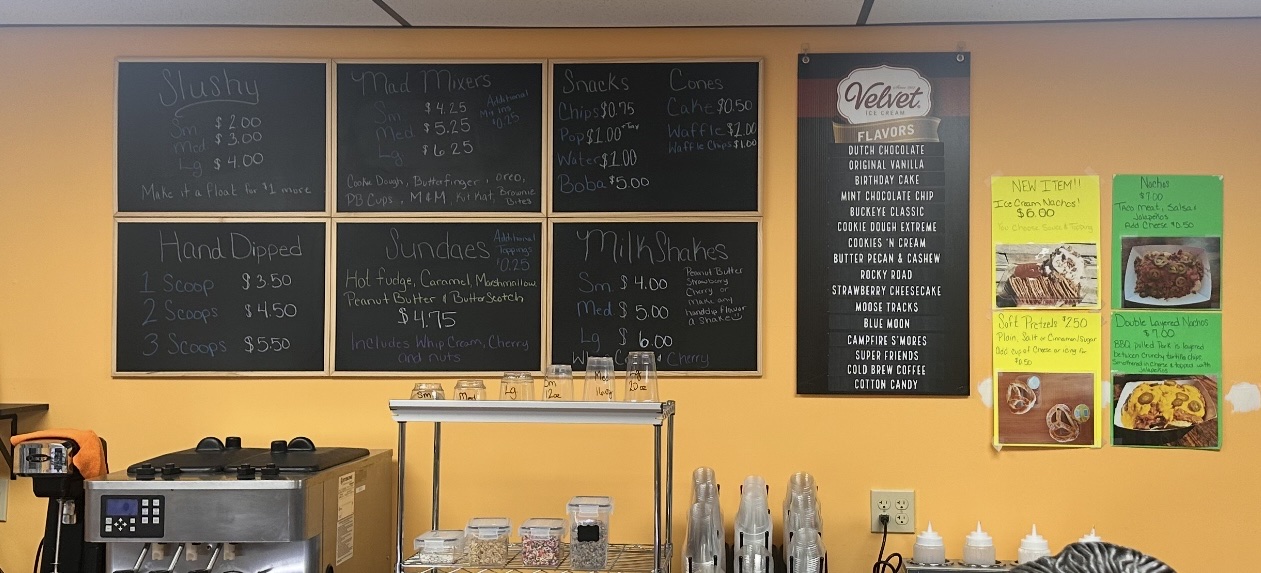 Slushy
Sm $2.00
Med $3.00
Lg $4.00
Make it a float for $1 more
Mad Mixers
Sm $4.25
Med $5.25
Lg $6.25
Additional
Mix Ins
$0.25
Cookie Dough, Butterfinger, Oreo,
PB Cups, M&M, Kit Kat, Brownie
Bites
Snacks
Chips $0.75
Pop $1.00 + Tax
Water $1.00
Boba $5.00
Cones
Cake $0.50
Waffle $1.00
Waffle Chips $1.00
Hand Dipped
1 Scoop $3.50
2 Scoops $4.50
3 Scoops $5.50
Sundaes
Additional
Toppings
$0.25
Hot fudge, Caramel, Marshmallow
Peanut Butter & ButterScotch
$4.75
Includes Whip Cream, Cherry
and nuts
MilkShakes
Sm $4.00
Med $5.00
Lg $6.00
Peanut Butter
Strawberry
Cherry or
make any
handdip flavor
a Shake
Cherry
Velvet
ICE CREAM
FLAVORS
DUTCH CHOCOLATE
ORIGINAL VANILLA
BIRTHDAY CAKE
MINT CHOCOLATE CHIP
BUCKEYE CLASSIC
COOKIE DOUGH EXTREME
COOKIES 'N CREAM
BUTTER PECAN & CASHEW
ROCKY ROAD
STRAWBERRY CHEESECAKE
MOOSE TRACKS
BLUE MOON
CAMPFIRE S'MORES
SUPER FRIENDS
COLD BREW COFFEE
COTTON CANDY
NEW ITEM!!
Ice Cream Nachos!
$6.00
Nachos
$7.00
Taco Meat, Salsa &
Jalapeños
Add Cheese $0.50
Soft Pretzels $2.50
Plain, Salt or Cinnamon/Sugar
Add cup of Cheese or icing for
$0.50
Double Layered Nachos
$7.00
BBQ pulled Pork is layered
between Crunchy tortilla chips
Smothered in Cheese & topped with
Jalapeños
Sm
Med
Lg
Sm
12oz
Med
16oz
Lg
20oz